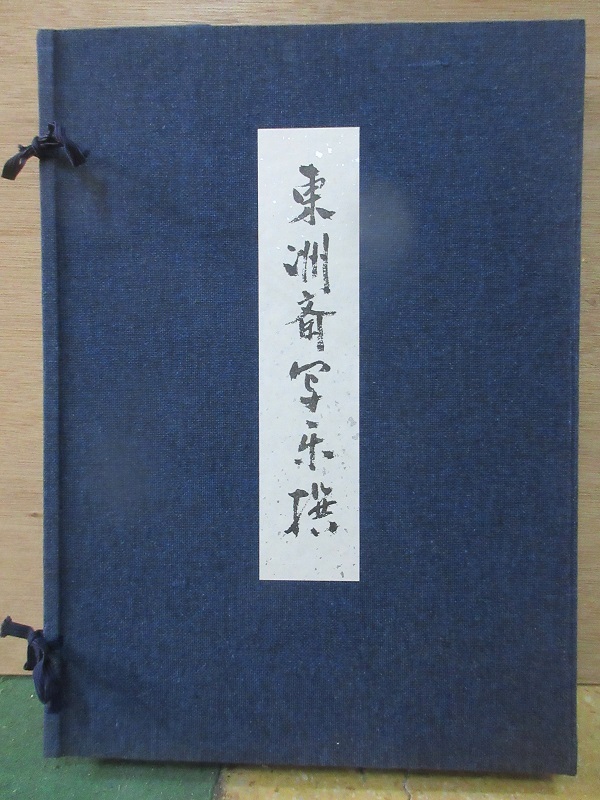 東洲斎写楽撰